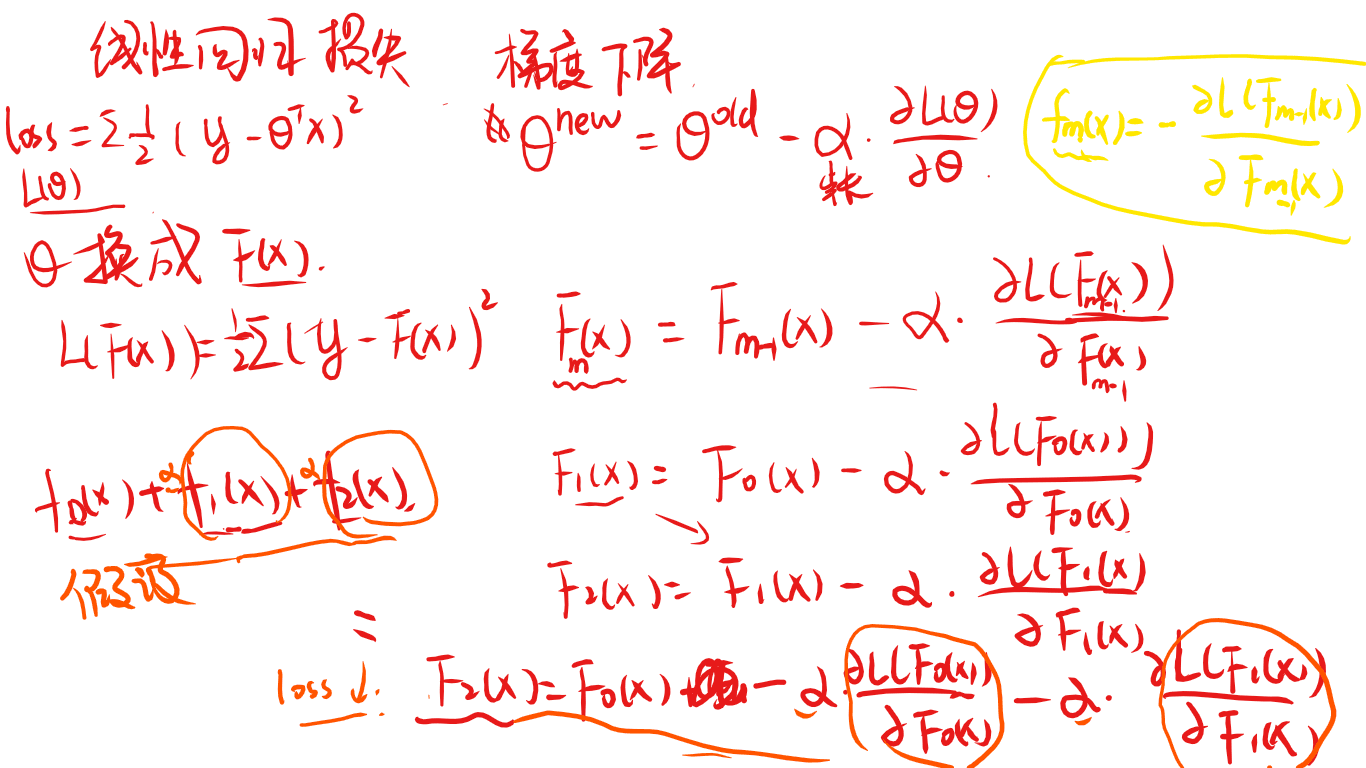 线性回归 损失 梯度下降
loss = Σ 1/2 (y - θᵀx)²
L(θ)
θ^new = θ^old - α · ∂L(θ)/∂θ
f_m(x) = - ∂L(F_{m-1}(x))/∂F_{m-1}(x)
θ 换成 F(x).
L(F(x)) = 1/2 Σ (y - F(x))²
F_m(x) = F_{m-1}(x) - α · ∂L(F_{m-1}(x))/∂F_{m-1}(x)
f₀(x) + αf₁(x) + αf₂(x)
F₁(x) = F₀(x) - α · ∂L(F₀(x))/∂F₀(x)
假设
F₂(x) = F₁(x) - α · ∂L(F₁(x)/∂F₁(x)
=
loss ↓.
F₂(x) = F₀(x) - α · ∂L(F₀(x))/∂F₀(x) - α · ∂L(F₁(x))/∂F₁(x)